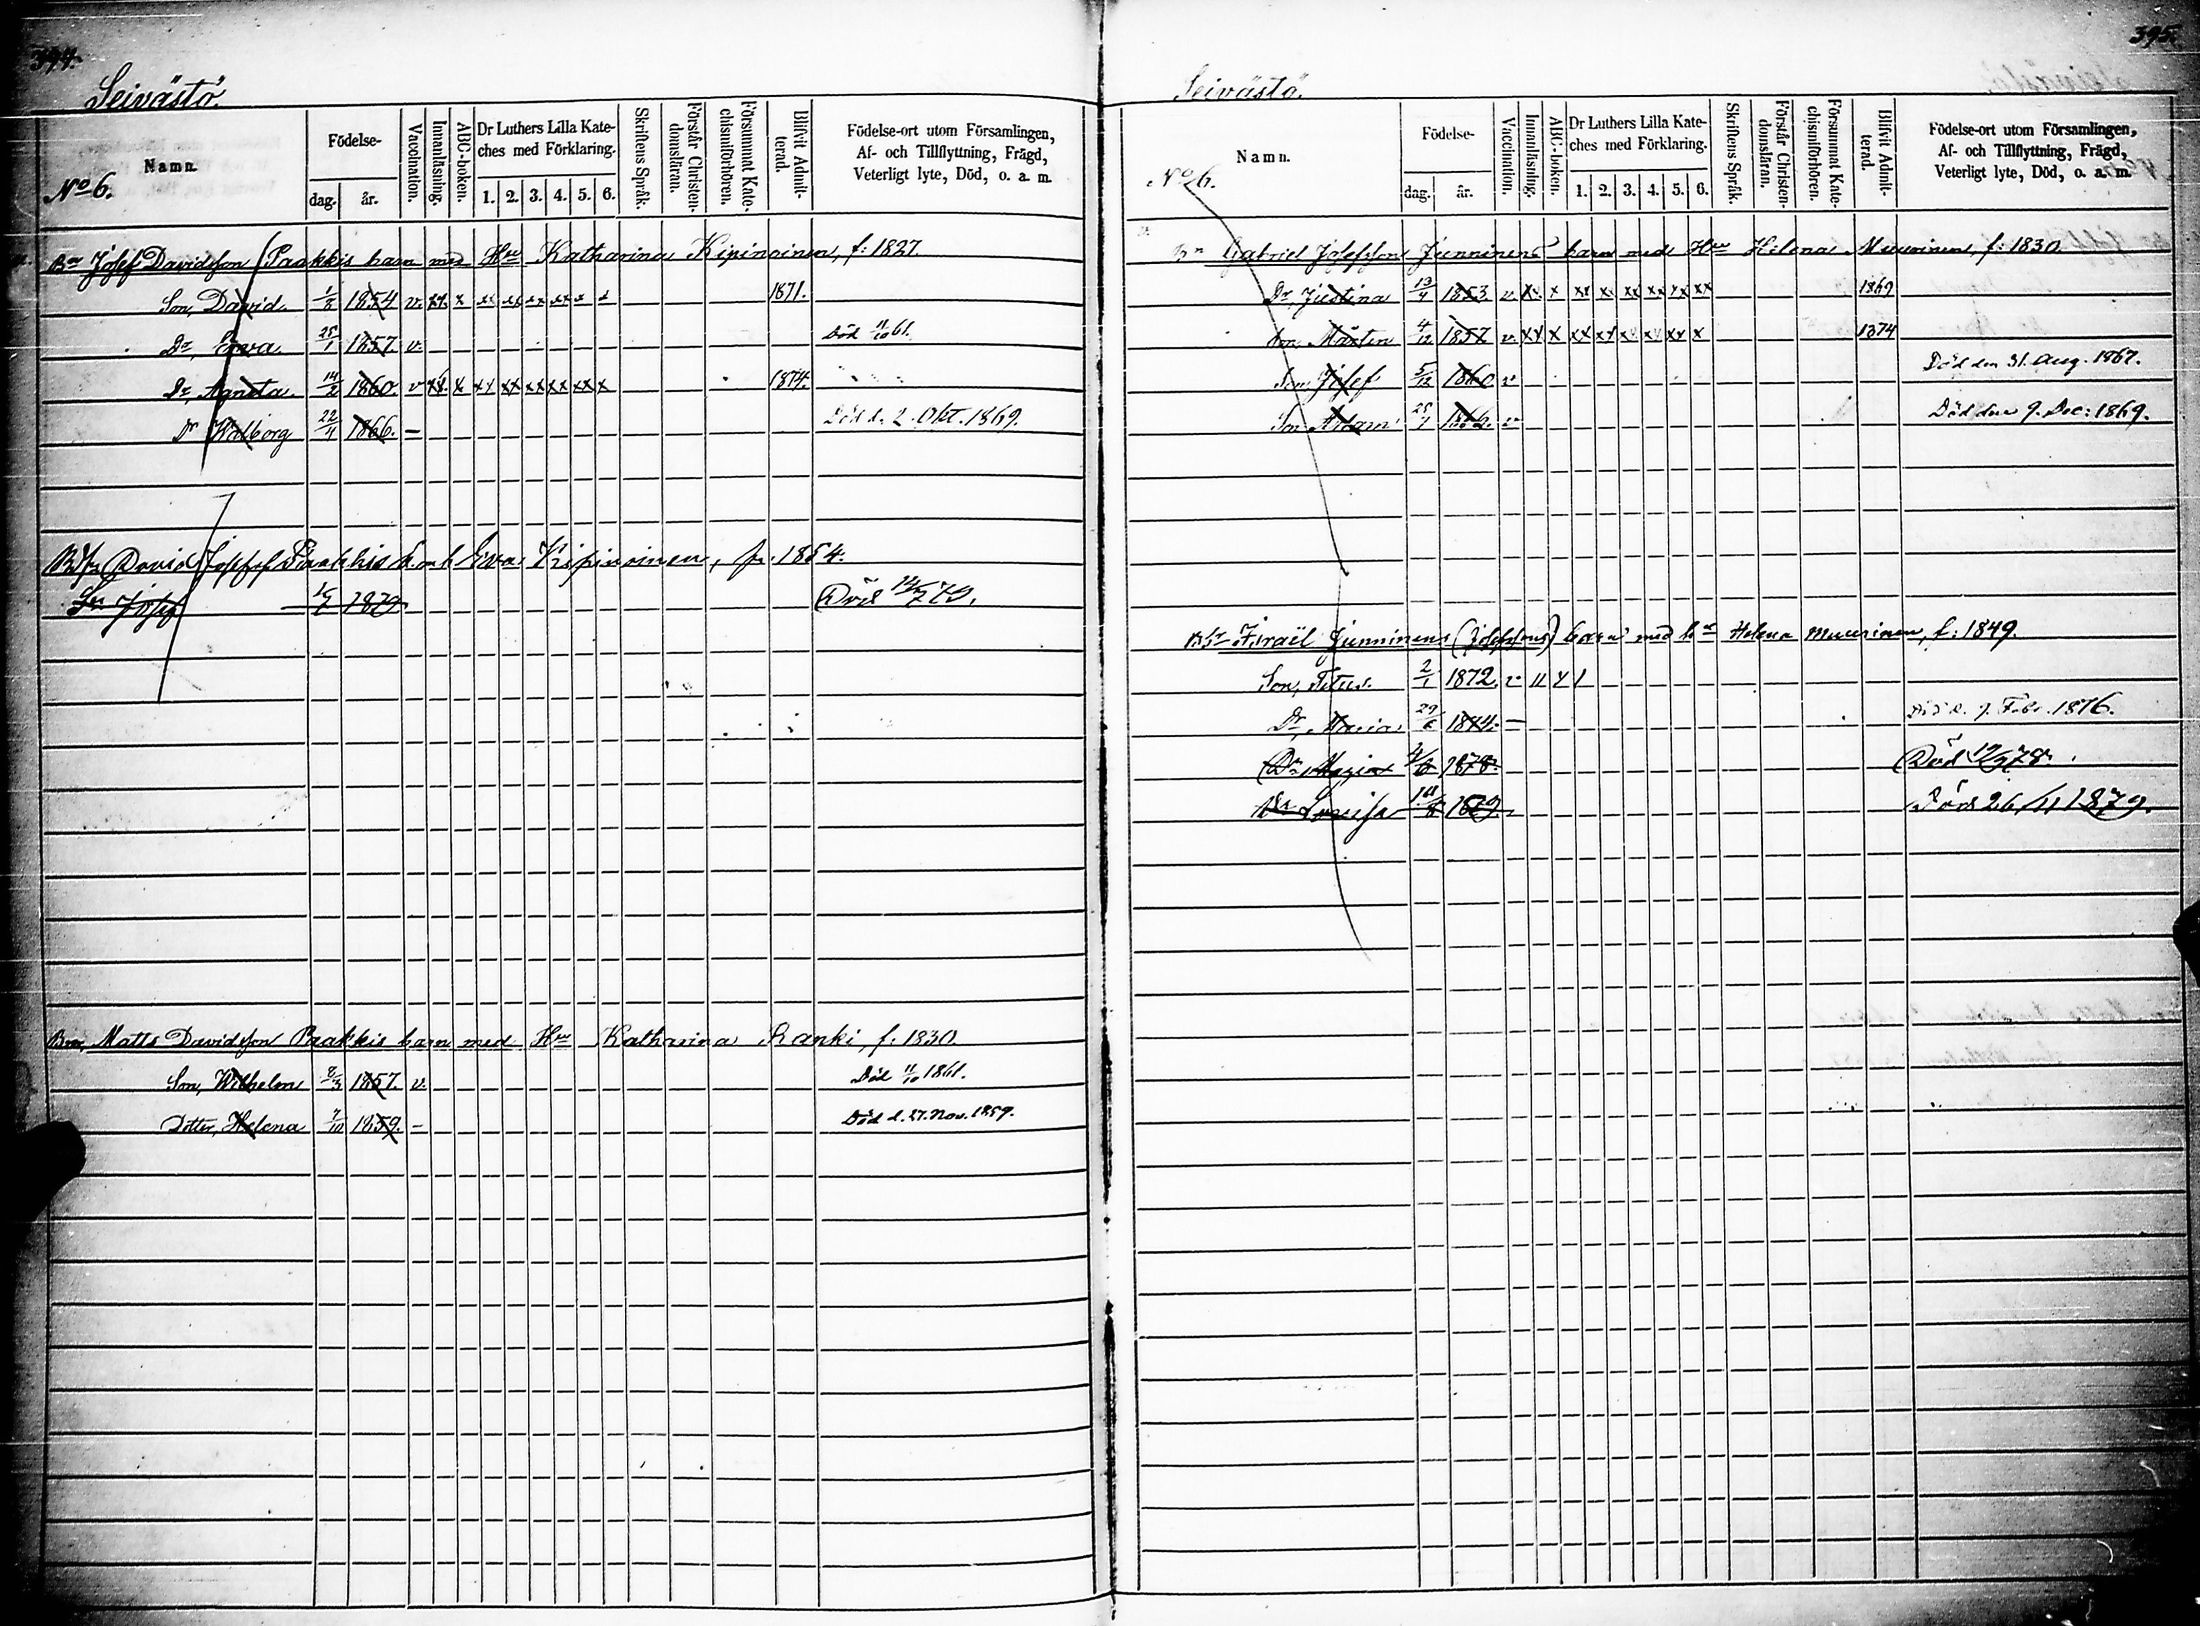 394.
Seivästö.
Namn.
No 6.
Födelse-
dag.
år.
Vaccination.
Innanläsning.
ABC-boken.
Dr Luthers Lilla Kate-
ches med Förklaring.
1. 2. 3. 4. 5. 6.
Skriftens Språk.
Förstår Christen-
domsläran.
Försummat Kate-
chismiförhören.
Blifvit Admit-
terad.
Födelse-ort utom Församlingen,
Af- och Tillflyttning, Frägd,
Veterligt lyte, Död, o. a. m.
Bn Josef Davidsson Paakkis barn med Hru Katharina Kipinoinen, f: 1827.
Son, David. 1/8 1854 v. xx x xx xx xx xx x x 1871.
Dr, Ewa 25/1 1857. v. Död 11/10 61.
Dr, Agneta 14/2 1860. v xx x xx xx xx xx xx x 1874.
Dr Walborg 22/4 1866. — Död d. 2. Okt. 1869.
David Josefss Paakkis Ewa Kipinoinen, f. 1854.
Josef 1879 Död 14/7 79.
Bn, Matts Davidsson Paakkis barn med Hru Katharina Ranki, f. 1830.
Son, Wilhelm 8/3 1857. v. Död 11/10 1861.
Dotter, Helena 7/10 1859. – Död d. 27. Nov. 1859.
395.
Seivästö.
Namn.
No 6.
Födelse-
dag.
år.
Vaccination.
Innanläsning.
ABC-boken.
Dr Luthers Lilla Kate-
ches med Förklaring.
1. 2. 3. 4. 5. 6.
Skriftens Språk.
Förstår Christen-
domsläran.
Försummat Kate-
chismiförhören.
Blifvit Admit-
terad.
Födelse-ort utom Församlingen,
Af- och Tillflyttning, Frägd,
Veterligt lyte, Död, o. a. m.
Bn Gabriel Josefsson Junninens barn med Hru Helena Muurinen, f: 1830
Dr, Justina 19/4 1853. v xx x xx x xx xx xx xx 1869
Son Mårten 4/12 1857 v. xx x xx xx xx xx xx x 1874
Son Josef 5/12 1860 v Död den 31. Aug. 1867.
Son Adam 25/1 1862. v Död den 9. Dec: 1869.
Israël Junninens (Josefsons) barn med Helena Muurinen, f: 1849.
Son, Titus. 2/1 1872. v
Dr, Maria 29/6 1874. — Död d. 7. Febr. 1876.
Dr Maria 1878. Död 78.
Dr Lovisa 1879. Död 26/11 1879.